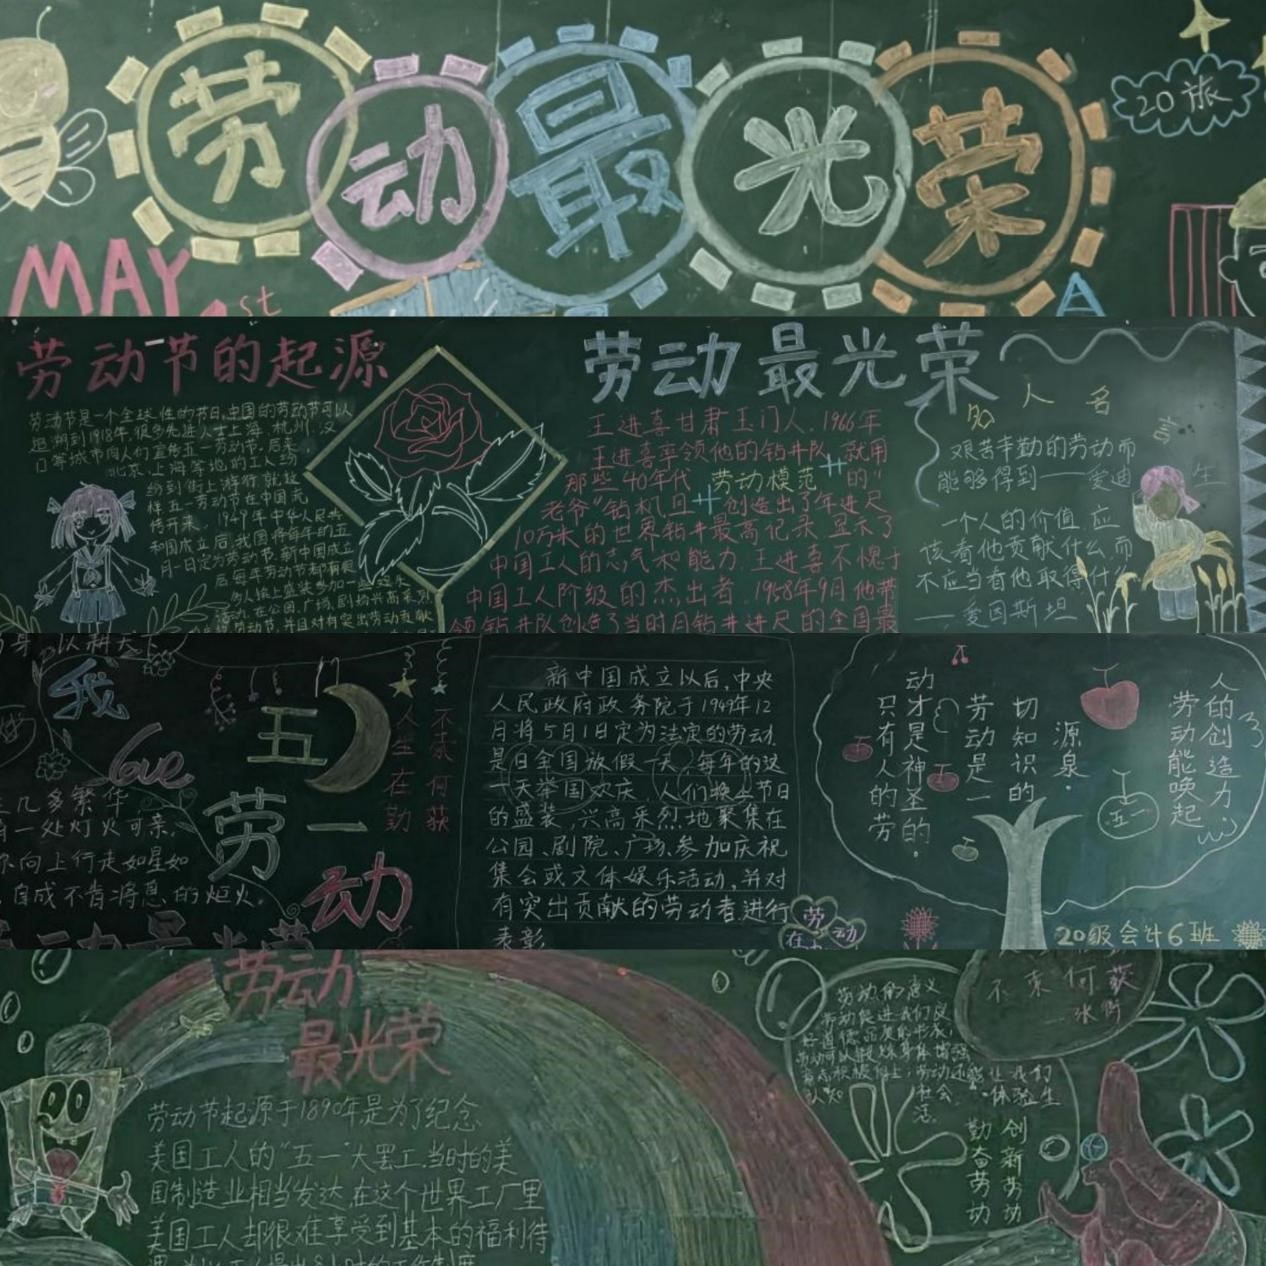 劳动最光荣
20旅
MAY
1st
劳动节的起源
劳动节是一个全球性的节日,中国的劳动节可以
追溯到1918年.很多先进人士上海、杭州、汉
口等城市向人们宣传五一劳动节.后来,
北京、上海等地的工人纷
纷到街上游行.就这
样五一劳动节在中国流
传开来.1949年中华人民共
和国成立后,我国将每年的五
月一日定为劳动节.新中国成立
后每年劳动节都有很
劳动最光荣
王进喜甘肃玉门人.1966年
王进喜率领他的钻井队就用
那些40年代"劳动模范"的"
老爷"钻机且创造出了年进尺
10万米的世界钻井最高记录显示了
中国工人的志气和能力.王进喜不愧于
中国工人阶级的杰出者.1958年9月他带
领钻井队创造了当时月钻井进尺的全国最
名人名言
艰苦辛勤的劳动而
能够得到——爱迪生
一个人的价值,应
该看他贡献什么而
不应当看他取得什"
——爱因斯坦
我
love
五一
劳动
人生在勤
不索何获
几多繁华
一处灯火可亲.
向上行走如星如
自成不肯将息的炬火.
劳动最光荣
新中国成立以后,中央
人民政府政务院于1949年12
月将5月1日定为法定的劳动.
是日全国放假一天,每年的这
一天举国欢庆,人们换上节日
的盛装,兴高采烈地聚集在
公园、剧院、广场,参加庆祝
集会或文体娱乐活动,并对
有突出贡献的劳动者进行
表彰.
人的创造力
劳动能唤起
源泉.
切知识的
劳动是一
动才是神圣的.
只有人的劳
五一
劳动
在
20级会计6班
劳动
最光荣
劳动节起源于1890年是为了纪念
美国工人的"五一"大罢工.当时的美
国制造业相当发达.在这个世界工厂里
美国工人却很难享受到基本的福利待
劳动的意义
劳动促进我们良
好道德品质的形成;
劳动可以锻炼身体增强
意志积极向上;劳动还能让我们
认知社会、体验生
活.
不索何获
—张衡
创新劳动
勤奋劳动